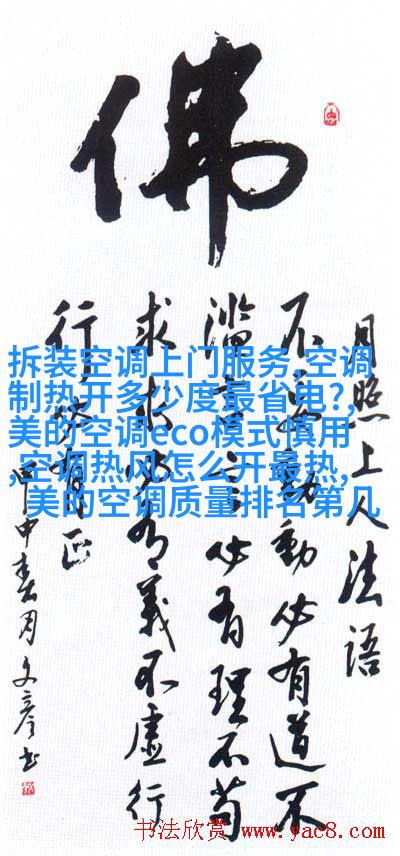 佛
月照上人法语
不妄動動必有道不
滥言言必有理不苟
求求必有義不虚行
行必有正
甲申春月文彦书
拆装空调上门服务-空调
制热开多少度最省电?,
美的空调eco模式慎用
,空调热风怎么开最热,
美的空调质量排名第几
书法欣赏 www.yac8.com